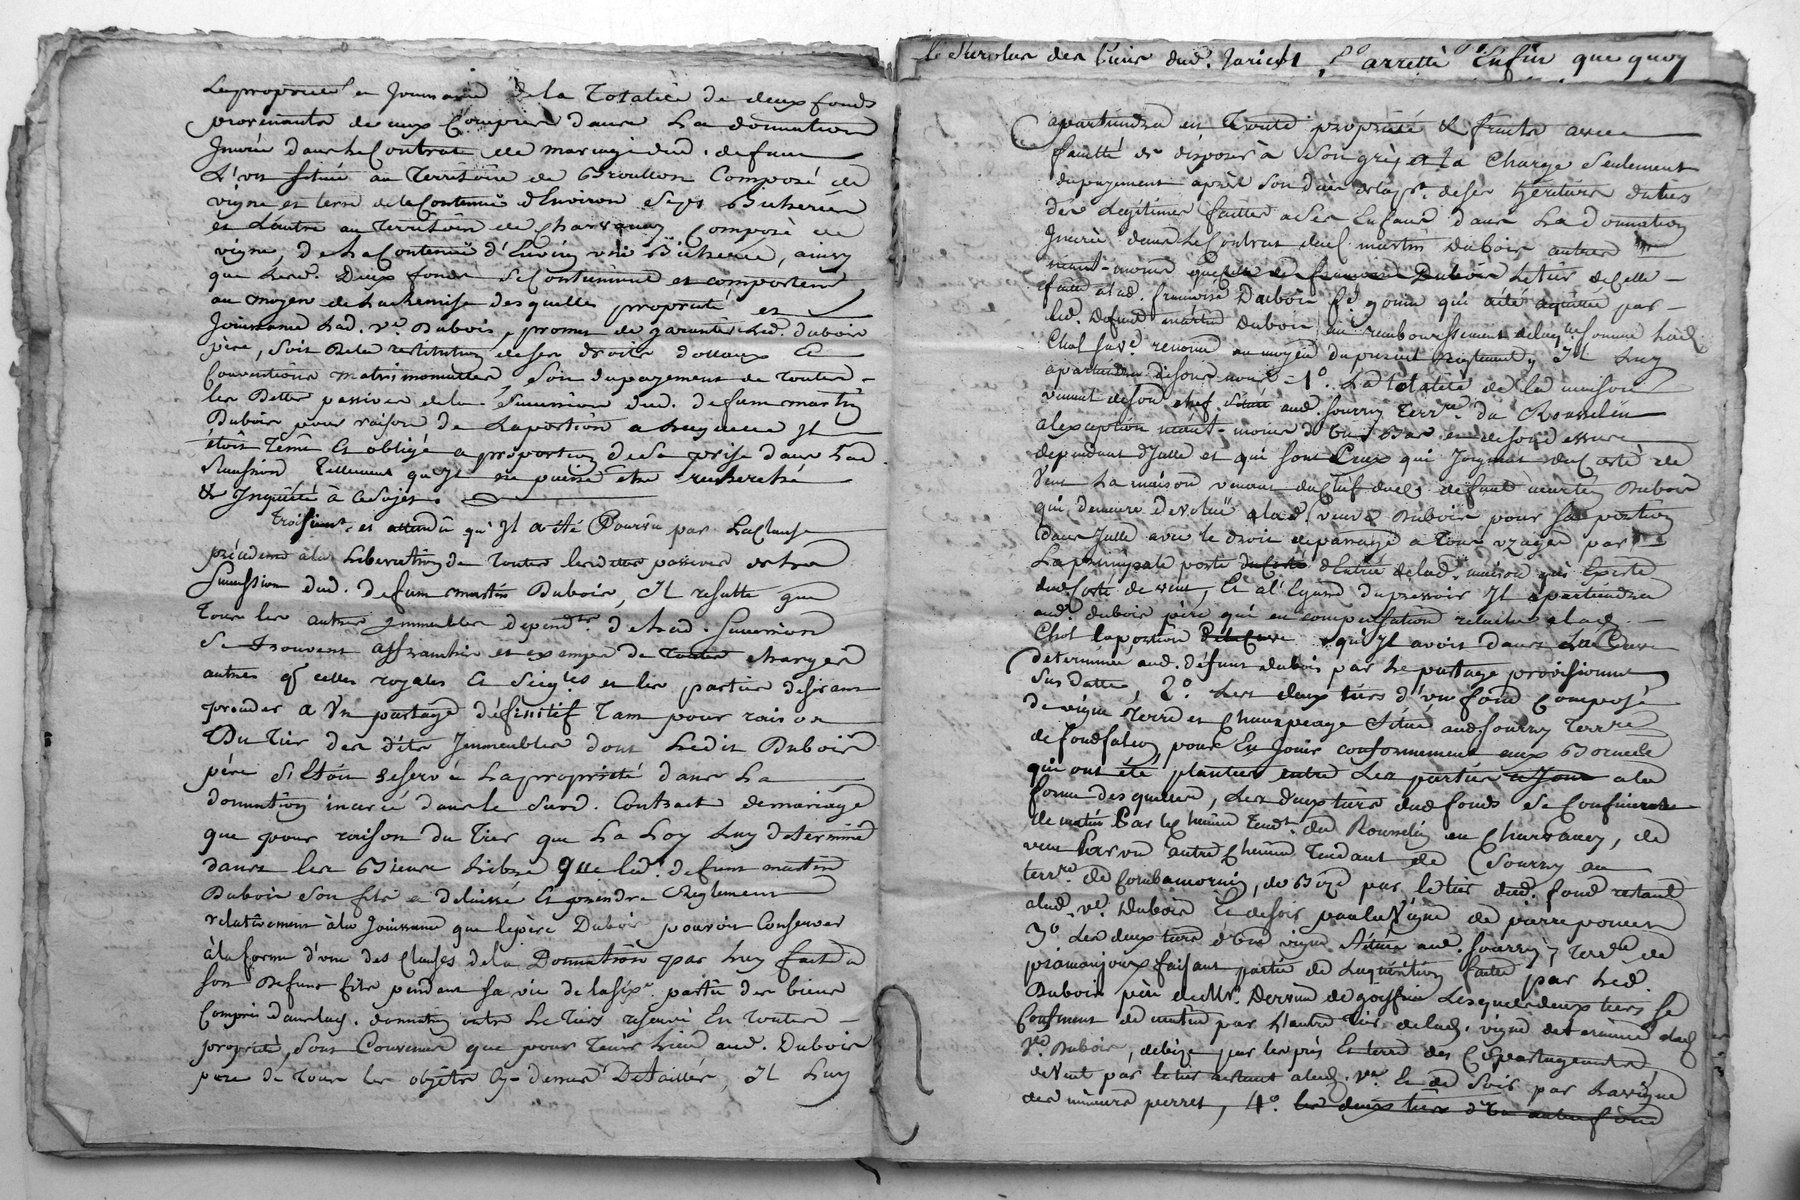 La propriété et Jouissance de la Totalité de deux fonds
provenants de eux Compris dans La donnation
Inserée dans le Contrat de mariage dud. defunt
L'un situé au Territoire de Composé de
vigne et terre de la Contenue d'Environ Bicherées
et L'autre au Territoire de Charvanay Composé de
vigne, de la Contenue d'Environ une Bicherée, ainsy
que lesd. Deux fonds se Contiennent et comportent
au moyen de la Remise desquelles propriété et
Jouissance Lad. ve. Dubois, promet de garantir led. dubois
père, soit de la restitution de ses droits dottaux et
Conventions matrimonialles, soit du payement de toutes
les Dettes passives de la sucession dud. defunt martin
Dubois pour raison de La portion a laquelle Il
étoit Tenu Et obligé a proportion de sa prise dans Lad.
sucession Tellement qu'Il ne puisse être recherché
& Inquiété à ce sujet.
Troisiemt. et attendû qu'Il a été Pourvu par La Clause
précédente à la Liberation de Toutes les dettes passives de la
Succession dud. defunt martin Dubois, Il resulte que
Tous les autres Immeubles depend.ts de Lad. sucession
se trouvent affranchis et exempts de toutes charges
autres q celles royales et seig.les et les parties desirant
proceder a Un partage définitif Tant pour raison
Du Tier des dits Immeubles dont Ledit Dubois
père s'Etoit reservé La propriété dans La
donnation inserée dans le susd. Contract de mariage
que pour raison du Tier que La Loy Luy determine
dans les Biens Libres que led. defunt martin
Dubois son fils a delaissé Et prendre Reglement
relativement à la Jouissance que le père Dubois pouvoit Conserver
à la forme d'une des Clauses de la Donnation par Luy faite a
son defunt fils pendant sa vie de la sixe. partie des biens
Compris dans lad. donnation outre Le Tiers reservé En Toute
propriété, sont Convenus que pour Tenir Lieu aud. Dubois
père de Tous les objets Cy-dessus Detaillés, Il Luy
le surplus des biens dud. arretté Enfin que quoy
apartiendra en Toute propriété & fruits avec
faculté de disposer à son gré et la Charge seulement
du payement après son décès de la pt. de ses heritiers du tiers
des Legitimes faittes a ses Enfans dans La donnation
Inserée dans Le Contrat dud. martin dubois autres
neant-moins que celle de francoise Dubois Le tier de celle
faitte a lad. francoise Dubois qui a été aquittée par
led. Defunt martin Dubois, au remboursement de laq.lle somme lad.
Chol sa ve. renonce au moyen du present Reglement, Il Luy
apartiendra d'isors avant 1°. La totalité de la maison
venant de son chef située aud. sourcy Terr.re du Rousselin
a l'exception neant-moins d'Un Bas et de son dessus
dependant d'Icelle et qui sont Ceux qui Joignent du Costé de
Vent La maison venant du Chef dud. defunt martin Dubois
qui demeure devolüe a lad. veuve Dubois pour sa portion
dans Icelle avec le droit de passage a Tous usages par
La principale porte d'Entrée de lad. maison qui Existe
du Costé de vent, Et a l'Egard du pressoir Il apartiendra
aud. dubois père qui en compensation relaisse a lad.
Chol la portion qu'il avoit dans La Cuve
determinée aud. défunt dubois par Le partage provisionnel
sus datte, 2° Les deux tiers d'Un fond composé
de vigne Terre et Champéage situé aud. sourcy Terr.re
de pour En Jouir conformement aux Bornes
qui ont été plantées entre Les parties a la
forme desquelles, Les deux tiers dud. fonds se Confinent
de matin Par le Chemin Tend.t du Rousselin en Charvanay, de
vent Par un autre Chemin Tendant de Sourcy au
terr.re de de Bize par le tier dud. fond restant
a lad. ve. Dubois Et de soir par la Vigne de pierre poncet
3° Les deux tiers d'Une vigne située aud. sourcy, Terr.re de
faisant partie de L'aquisition faitte par Led.
Dubois père de Mr. Lesquels deux tiers se
Confinent de matin par L'autre Tier de lad. vigne determiné a lad.
ve. Dubois, de bize par les prés Et terre des Copartageants,
de Vent par le tier restant a lad. ve. Et de soir par La vigne
des mineurs perret, 4°. les deux tiers d'Un autre fond